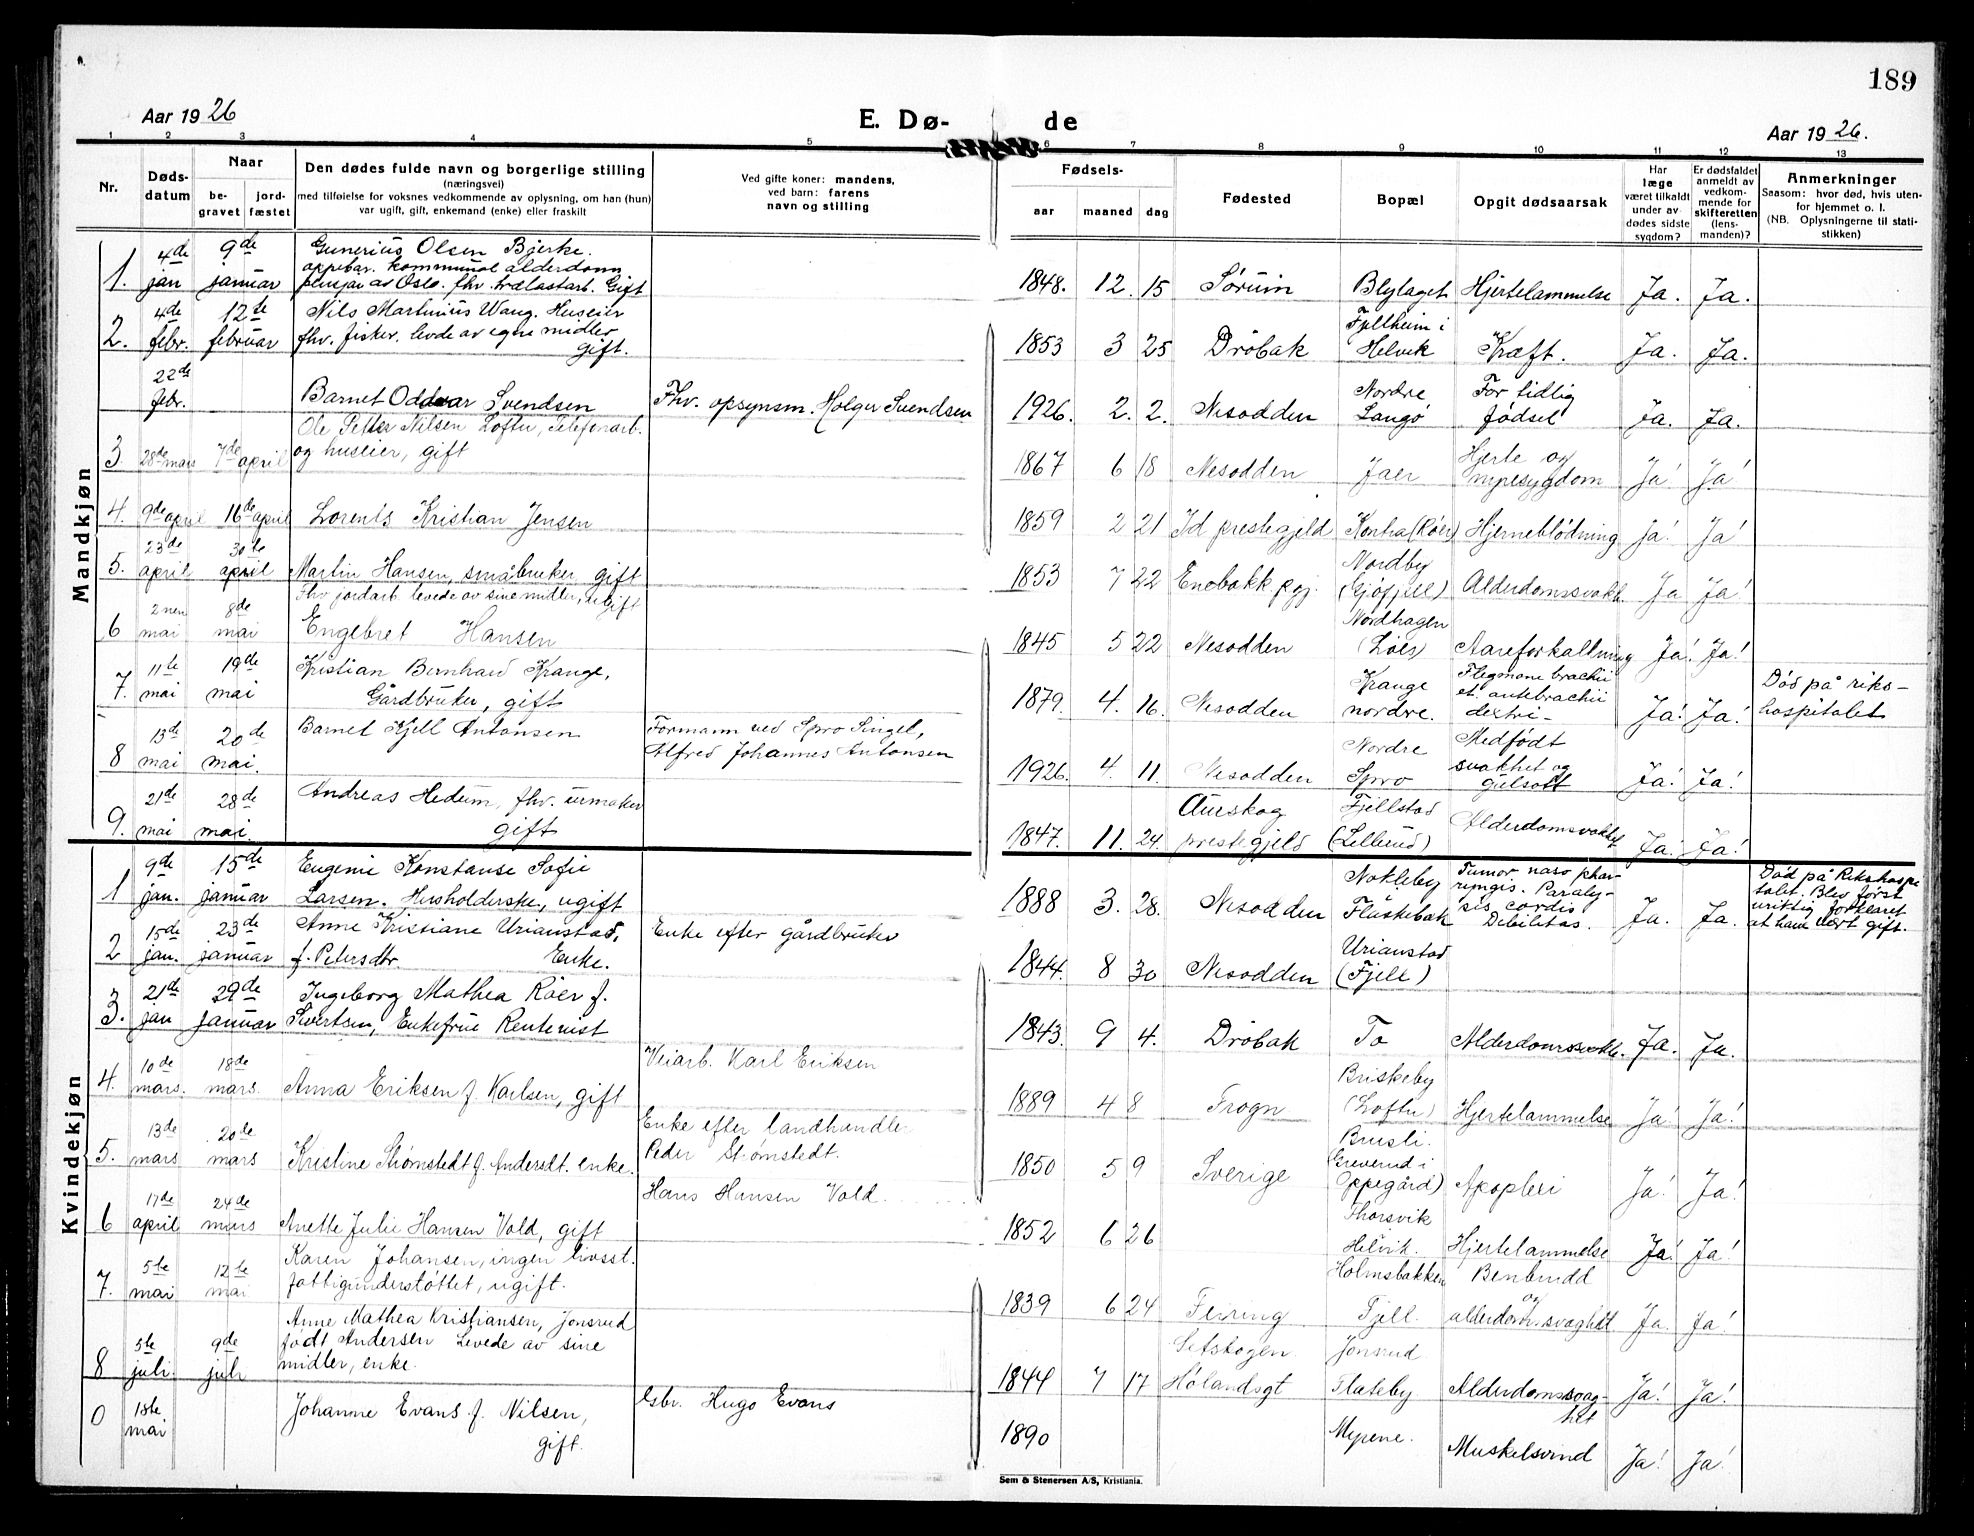 189
Aar 1926
E. Dø-
de
Aar 1926.
1 2 3 4 5 6 7 8 9 10 11 12 13
Nr.
Døds-
datum
Naar
be-
gravet
jord-
fæstet
Den dødes fulde navn og borgerlige stilling
(næringsvei)
med tilføielse for voksnes vedkommende av oplysning, om han (hun)
var ugift, gift, enkemand (enke) eller fraskilt
Ved gifte koner: mandens,
ved barn: farens
navn og stilling
Fødsels-
aar
maaned
dag
Fødested
Bopæl
Opgit dødsaarsak
Har
læge
været tilkaldt
under av-
dødes sidste
sygdom?
Er dødsfaldet
anmeldt av
vedkom-
mende for
skifteretten
(lens-
manden)?
Anmerkninger
Saasom: hvor død, hvis uten-
for hjemmet o. l.
(NB. Oplysningerne til stati-
stikken)
Mandkjøn
1. 4de jan 9de januar
Gunerius Olsen Bjerke.
oppebar. kommunal alderdoms
pensjon av Oslo. fhv. trælastarb. Gift
1848. 12. 15 Sørum Blylaget Hjertelammelse Ja. Ja.
2. 4de febr. 12te februar
Nils Martinius Wang. Huseier
fhv. fisker. levde av egne midler
gift.
1853 3 25 Drøbak Fjellheim i Helvik Kræft. Ja. Ja.
22de febr.
Barnet Oddvar Svendsen
Fhv. opsynsm. Holger Svendsen
1926. 2. 2. Nesodden Nordre Langø For tidlig fødsel Ja. Ja.
3 28de mars 7de april
Ole Petter Nilsen Loftu, Telefonarb.
og huseier, gift
1867 6 18 Nesodden Jaer Hjerte og nyresygdom Ja! Ja!
4. 9de april 16de april
Lorents Kristian Jensen
1859 2 21 Id prestegjeld (Røer) Hjerneblødning Ja! Ja!
5. 23de april 30te april
Martin Hansen, småbruker, gift
1853 7 22 Enebakk pgj. Nordby Alderdomssvakh. Ja Ja!
6 2nen mai 8de mai
Fhv jordarb. levede av sine midler, ugift
Engebret Hansen
1845 5 22 Nesodden Nordhagen Aareforkalkning Ja! Ja!
7. 11te mai 19de mai
Kristian Bernhard Krange,
Gårdbruker, gift
1879. 4. 16. Nesodden Krange nordre. Flegmone brachii et. antebrachii dextri- Ja! Ja!
Død på riks-
hospitalet
8 13de mai 20de mai.
Barnet Kjell Antonsen
Formann ved Spro Singel,
Alfred Johannes Antonsen
1926. 4. 11. Nesodden Nordre Spro Medfødt svakhet og gulsott Ja! Ja!
9. 21de mai 28de mai.
Andreas Hedum, fhv. urmaker
gift
1847. 11. 24. Aurskog prestegjeld Fjellstad Alderdomsvakhet Ja! Ja!
Kvindekjøn
1 9de jan. 15de januar
Eugenie Konstanse Sofie
Larsen. Husholderske, ugift
1888 3. 28. Nesodden Nokleby Flaskebæk Tumor naso pharyngis. Paralysis cordis Debilitas. Ja. Ja.
Død på Rikshospi
talet. Blev først
uriktig forklaret
at have vært gift.
2 15de jan. 23de januar
Anne Kristiane Urianstad,
f. Petersdtr. Enke.
Enke efter gårdbruker
1844. 8 30 Nesodden Urianstad (Fjell)
3. 21de jan 29de januar
Ingeborg Mathea Røer f.
Sivertsen, Enkefrue Rentenist
1843. 9 4. Drøbak To Alderdomssvakh. Ja. Ja.
4. 10de mars. 18de mars.
Anna Eriksen f. Karlsen, gift
Veiarb. Karl Eriksen
1889 4 8 Frogn Briskeby (Loftu) Hjertelammelse Ja! Ja!
5. 13de mars 20de mars
Kristine Strømstedt f. Andersdt. enke.
Enke efter landhandle
Peder Strømstedt.
1850 5 9 Sverige Brusli. (Greverud i Oppegård) Apopleri Ja! Ja!
6 17de april 24de mars
Anette Julie Hansen Vold, gift
Hans Hansen Vold
1852 6 26 Thorsvik Helvik. Hjertelammelse Ja! Ja!
7. 5te mai 12te mai
Karen Johansen, ingen livsst.
fattigunderstøttet, ugift.
1839 6 24 Feiring Holmsbakken Fjell. Benbrudd og alderdom.svaghet Ja! Ja!
8 5te juli. 9de juli
Anne Mathea Kristiansen, Jonsrud
født Andersen Levede av sine
midler, enke.
1844 7 17 Setskogen Hølandsgt Jonsrud Flateby Alderdomssvag-
het Ja! Ja!
0 18te mai
Johanne Evans f. Nilsen,
gift.
Gsbr. Hugo Evans
1890 Myrene. Muskelsvind Ja! Ja!
Sem & Stenersen A/S, Kristiania.